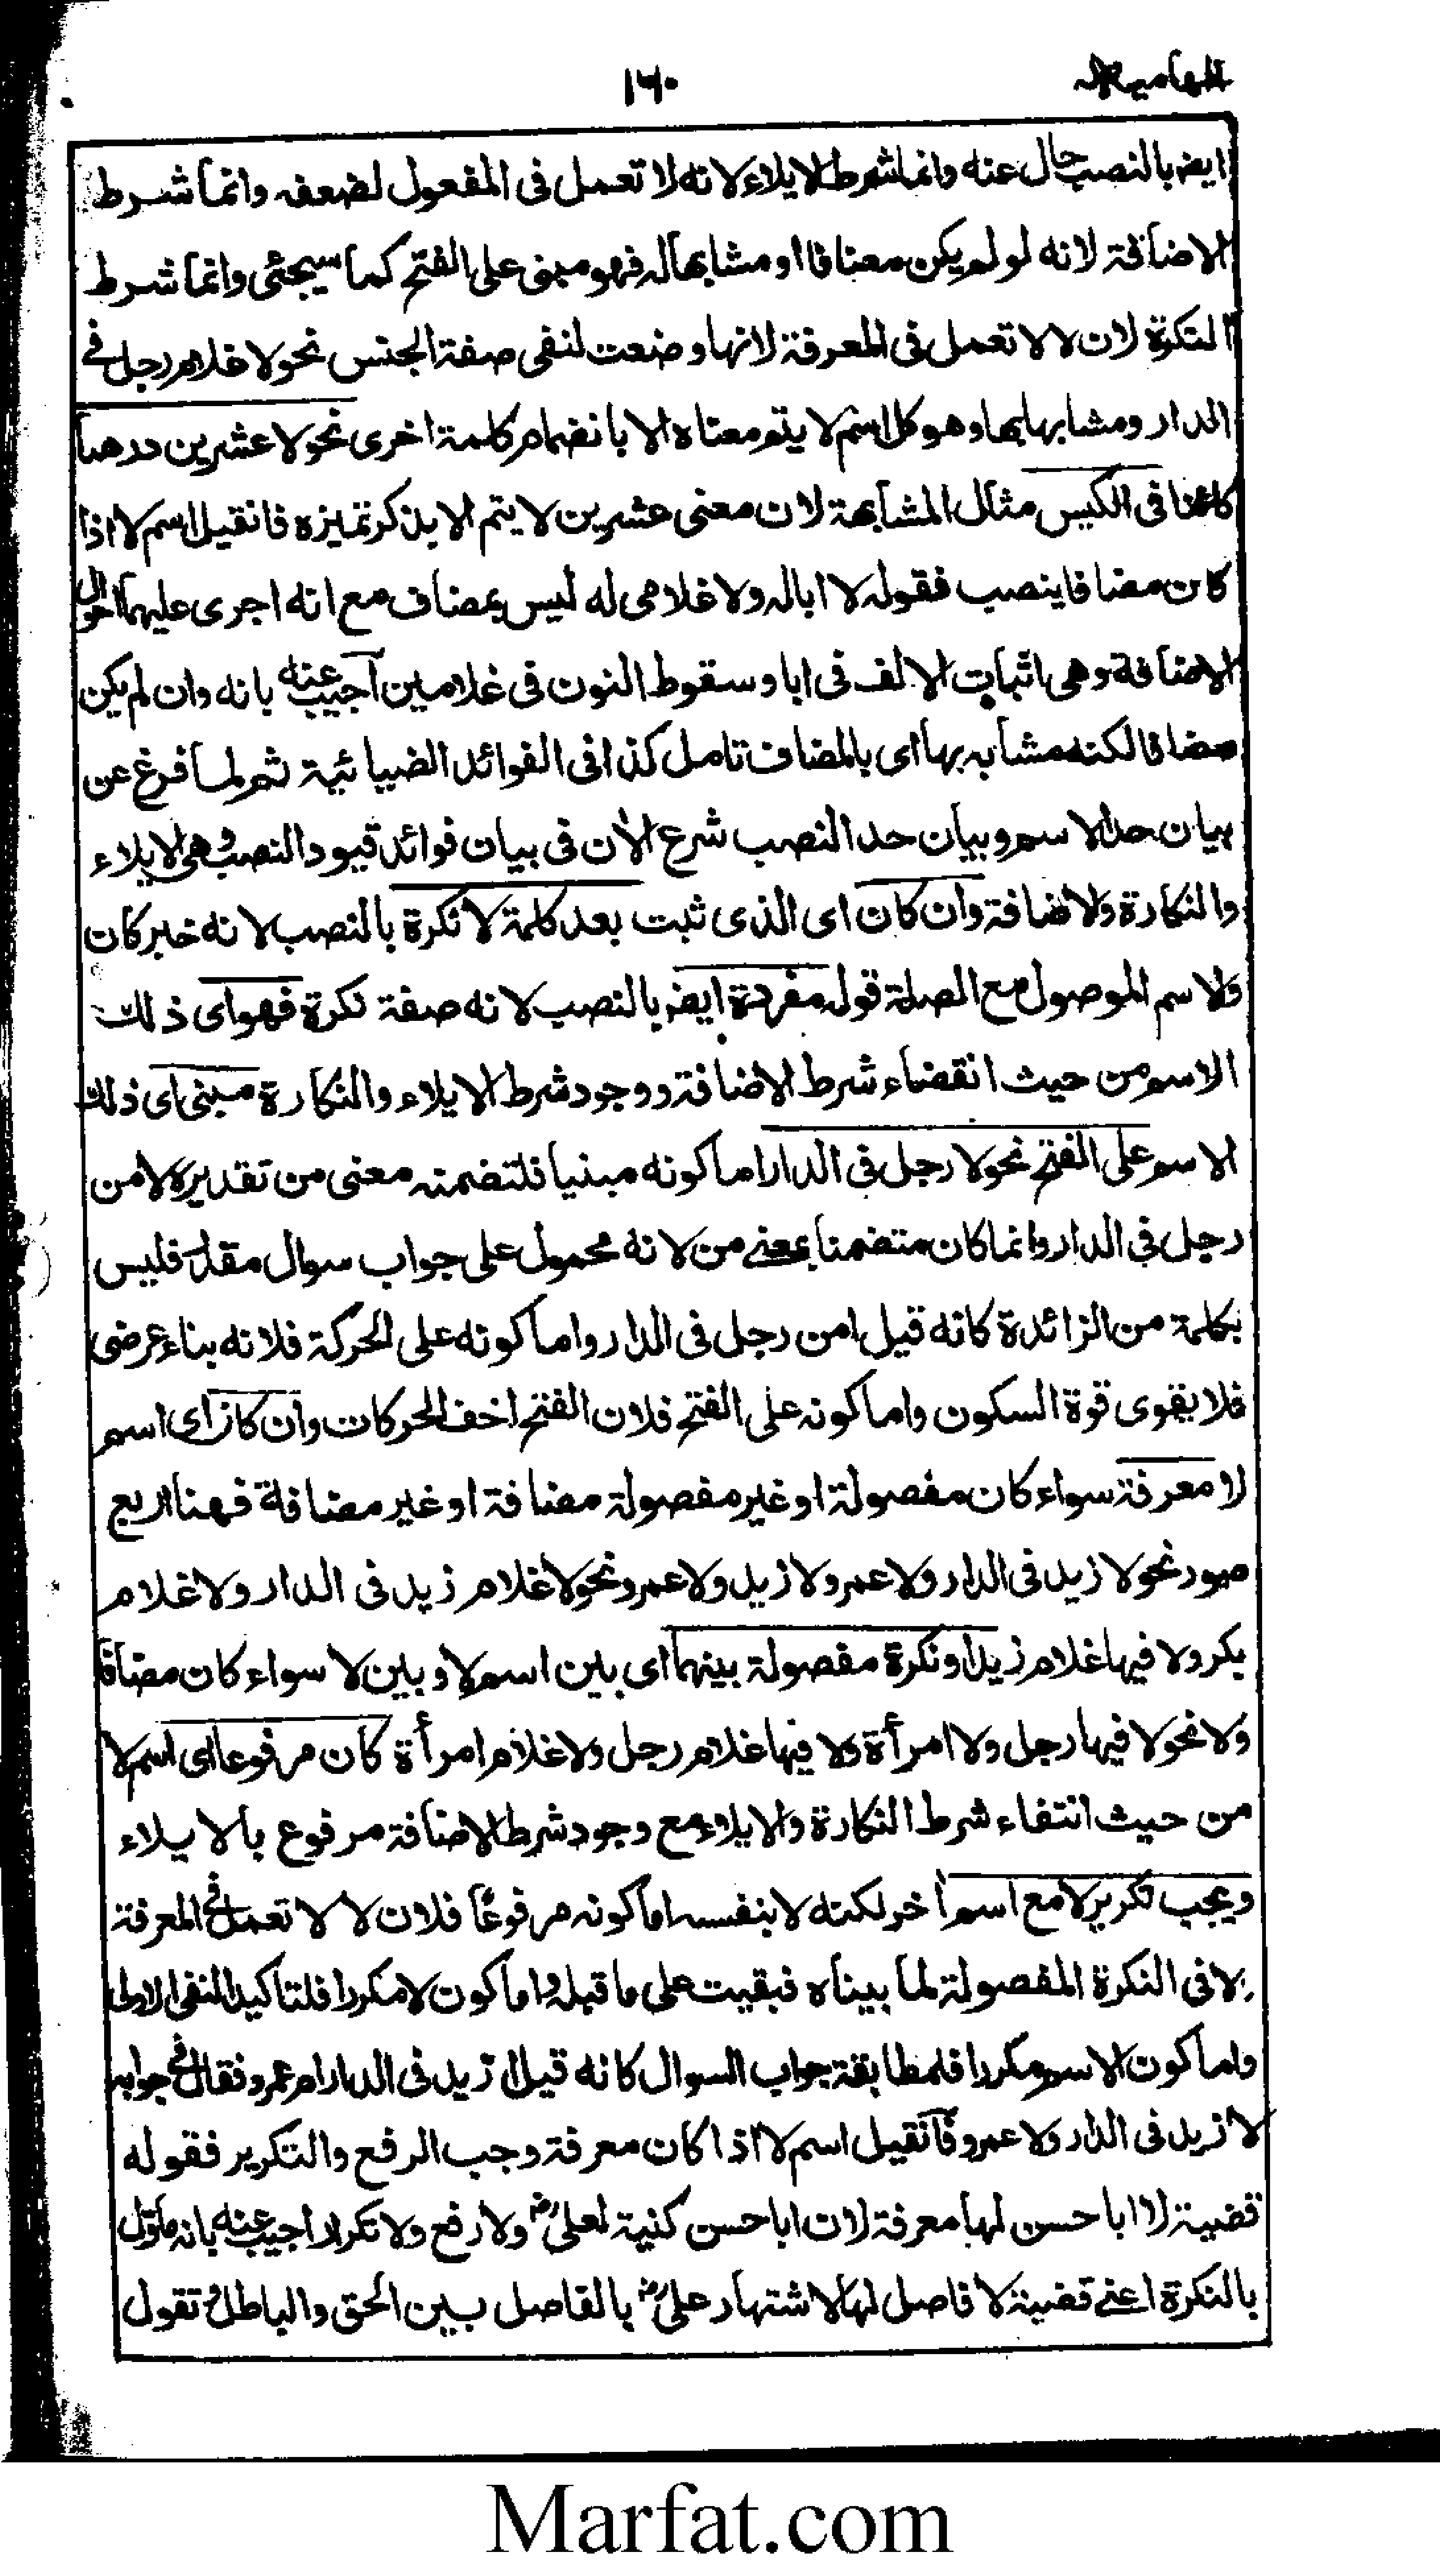 الهامیه ۱۶۰
ایضا بالنصب حال عنه وانما شرط الایلاء لانه لا تعمل فی المفعول لضعفه وانما شرط
الاضافة لانه لو لم یکن مضافا او مشابها له فهو مبنی علی الفتح کما سیجئی وانما شرط
النکرة لان لا لا تعمل فی المعرفة لانها وضعت لنفی صفة الجنس نحو لا غلام رجل فی
الدار ومشابها بها وهو کل اسم لا یتم معناه الا بانضمام کلمة اخری نحو لا عشرین درهما
کائنا فی الکیس مثال المشابهة لان معنی عشرین لا یتم الا بذکر تمیزه فان قیل اسم لا اذا
کان مضافا ینصب فقوله لا ابا له ولا غلامی له لیس بمضاف مع انه اجری علیهما احوال
الاضافة وهی اثبات الالف فی ابا وسقوط النون فی غلامین اجیب عنه بانه وان لم یکن
مضافا لکنه مشابه بها ای بالمضاف تامل کذا فی الفوائد الضیائیة ثم لما فرغ عن
بیان حد الاسم وبیان حد النصب شرع الآن فی بیان فوائد قیود النصب وهی الایلاء
والنکارة والاضافة وان کان ای الذی ثبت بعد کلمة لا نکرة بالنصب لانه خبر کان
والاسم الموصول مع الصلة قوله مفردة ایضا بالنصب لانه صفة نکرة فهو ای ذلك
الاسم من حیث انقضاء شرط الاضافة ووجود شرط الایلاء والنکارة مبنی ای ذلك
الاسم علی الفتح نحو لا رجل فی الدار اما کونه مبنیا فلتضمنه معنی من تقدیره لا من
رجل فی الدار وانما کان متضمنا بمعنی من لانه محمول علی جواب سوال مقدر فلیس
بکلمة من الزائدة کانه قیل امن رجل فی الدار واما کونه علی الحرکة فلانه بناء عرضی
فلا یقوی قوة السکون واما کونه علی الفتح فلان الفتح اخف الحرکات وان کان ای اسم
لا معرفة سواء کان مفصولة او غیر مفصولة مضافة او غیر مضافة فهنا اربع
صور نحو لا زید فی الدار ولا عمرو ولا زید ولا عمرو ونحو لا غلام زید فی الدار ولا غلام
بکر ولا فیها غلام زید او نکرة مفصولة بینهما ای بین اسم لا وبین لا سواء کان مضافا
ولا نحو لا فیها رجل ولا امرأة ولا فیها غلام رجل ولا غلام امرأة کان مرفوعا ای اسم لا
من حیث انتفاء شرط النکارة والایلاء مع وجود شرط الاضافة مرفوع بالایلاء
ویجب تکریر لا مع اسم آخر لکنه لا بنفسه اما کونه مرفوعا فلان لا لا تعمل فی المعرفة
ولا فی النکرة المفصولة لما بیناه فبقیت علی ما قبله واما کون لا مکررا فلتاکید النفی الاولی
واما کون الاسم مکررا فلمطابقة جواب السوال کانه قیل ازید فی الدار ام عمرو فقال فی جوابه
لا زید فی الدار ولا عمرو فان قیل اسم لا اذا کان معرفة وجب الرفع والتکریر فقوله
قضیة لا ابا حسن لها معرفة لان ابا حسن کنیة لعلی رض ولا رفع ولا تکرار اجیب عنه بانه مأول
بالنکرة اعنی قضیة لا فاصل لها لاشتهار علی رض بالفاصل بین الحق والباطل تقول
Marfat.com